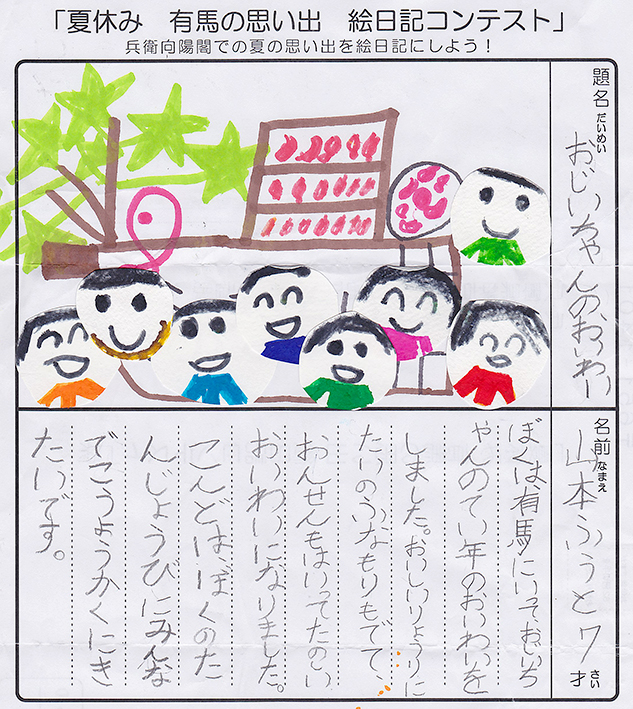 「夏休み　有馬の思い出　絵日記コンテスト」
兵衛向陽閣での夏の思い出を絵日記にしよう！
題名 だいめい
おじいちゃんのおいわい
名前 なまえ
山本ふうと 7才 さい
ぼくは、有馬にいっておじいち
ゃんのてい年のおいわいを
しました。おいしいりょうりに
たいのふなもりもでて、
おんせんもはいってたのしい
おいわいになりました。
こんどは、ぼくのた
んじょうびにみんな
でこうようかくにき
たいです。